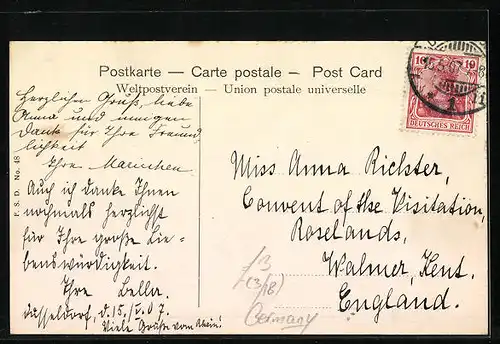 Postkarte — Carte postale — Post Card
Weltpostverein — Union postale universelle
Herzlichen Gruß, liebe
Anna und innigen
Dank für Ihre Freund
lichkeit
Ihre Mariechen.
Auch ich danke Ihnen
nochmals herzlichst
für Ihre große Lie=
benswürdigkeit.
Ihre Bella.
Düsseldorf, d. 15./V. 07.
Viele Grüße vom Rhein!
F. S. D. No. 48
10 10
DEUTSCHES REICH
15.5.07
1
Miss Anna Richter,
Convent of the Visitation,
Roselands,
Walmer, Kent.
England.
Germany